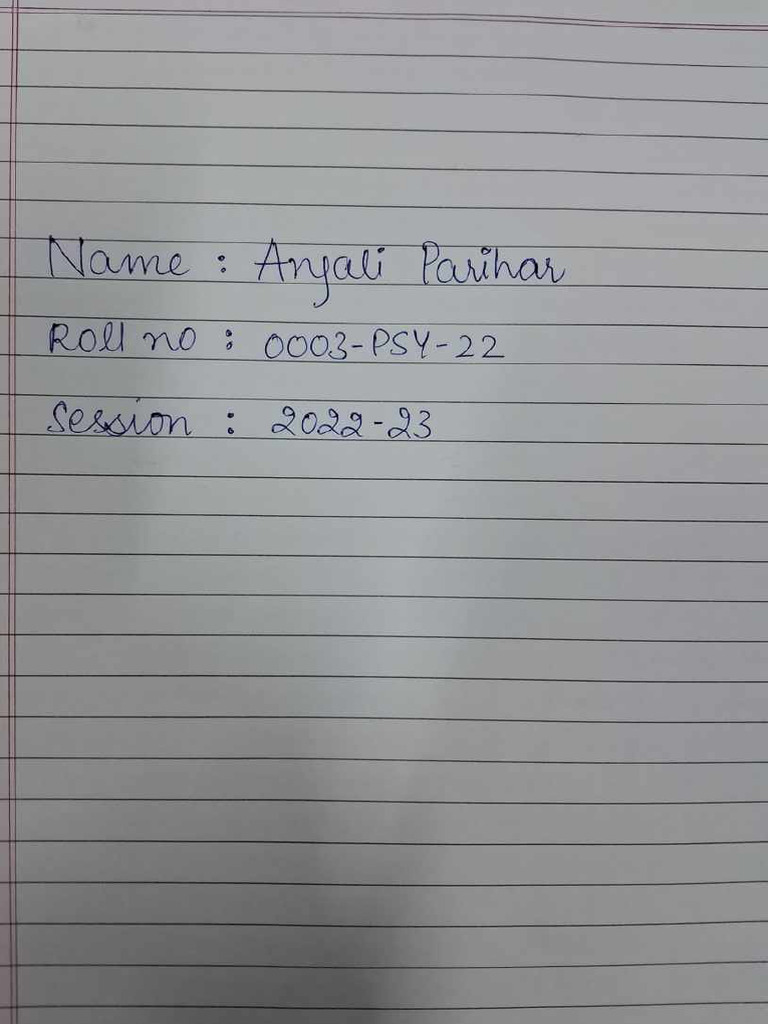 Name : Anjali Parihar
Roll no : 0003-PSY-22
Session : 2022-23